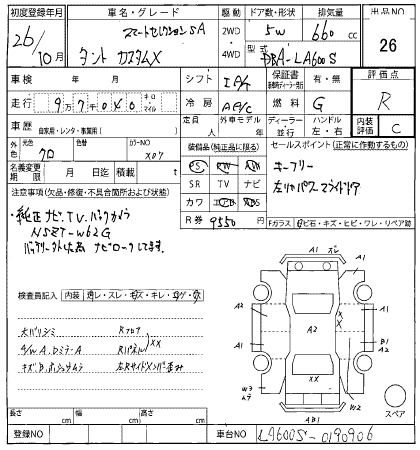 初度登録年月 車名・グレード 駆動 ドア数・形状 排気量 出品NO
26/10月 スマートセレクションSA 2WD 5W 660cc 26
タントカスタムX 4WD 型式 DBA-LA600S
車検 年 月 シフト IAT 保証書 有・無 評価点
走行 9万7千040 キロ・マイル 冷房 AAC 燃料 G R
車歴 自家用・レンタ・事業用( ) 定員 人 外車モデル 年 ディーラー 並行 ハンドル 左・右 内装評価 C
外色 元色 クロ 色替 カラーNO X07 装備品(純正品に限る) セールスポイント(正常に作動するもの)
名義変更期限 月 日 積載 t PS PW
SR TV ナビ キーフリー
注意事項(欠品・修復・不具合箇所および状態) カワ ABS 左リヤパワースライドドア
・純正ナビ、TV、バックカメラ R券 9550 Fガラス 石・キズ・ヒビ・ワレ・リペア跡
NSZT-W62G
バッテリー外した為ナビロックしてます。
検査員記入 内装
大バリシミ Rフロア
A/W A、Dミラー A Rパネル XX
キズ、B、ホシュウムラ 左Rサイドメンバ歪み
A1 A1 A2 A2 A1 XX W3 W2 B1 A2 AB1
スペア
長さ cm 幅 cm 高さ cm
登録NO 車台NO LA600S-0190906